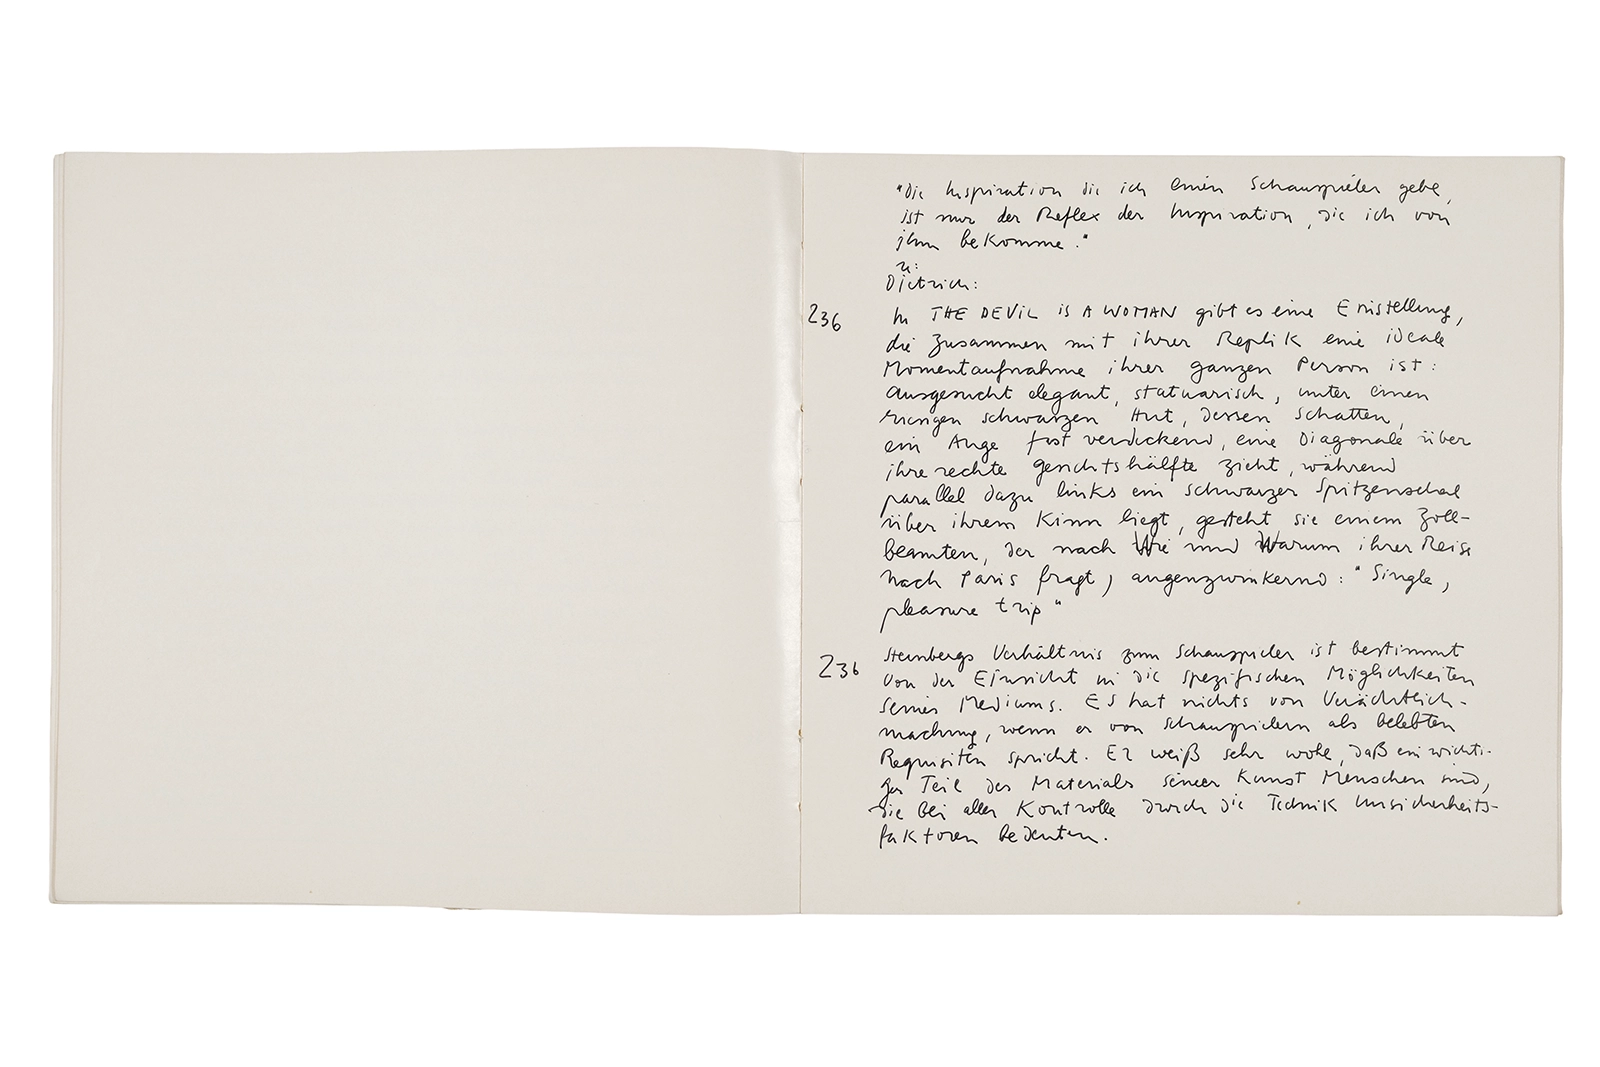 "Die Inspiration die ich einem Schauspieler gebe,
ist nur der Reflex der Inspiration, die ich von
ihm bekomme."
zu:
Dietrich:
236 In THE DEVIL IS A WOMAN gibt es eine Einstellung,
die zusammen mit ihrer Replik eine ideale
Momentaufnahme ihrer ganzen Person ist:
ausgesucht elegant, statuarisch, unter einem
riesigen schwarzen Hut, dessen Schatten,
ein Auge fast verdeckend, eine Diagonale über
ihre rechte Gesichtshälfte zieht, während
parallel dazu links ein schwarzer Spitzenschal
über ihrem Kinn liegt, gesteht sie einem Zoll-
beamten, der nach Wie und Warum ihrer Reise
nach Paris fragt, augenzwinkernd: "Single,
pleasure trip"
236 Sternbergs Verhältnis zum Schauspieler ist bestimmt
von der Einsicht in die spezifischen Möglichkeiten
seines Mediums. Es hat nichts von Verächtlich-
machung, wenn er von Schauspielern als belebten
Requisiten spricht. Er weiß sehr wohl, daß ein wichti-
ger Teil des Materials seiner Kunst Menschen sind,
die bei aller Kontrolle durch die Technik Unsicherheits-
faktoren bedeuten.